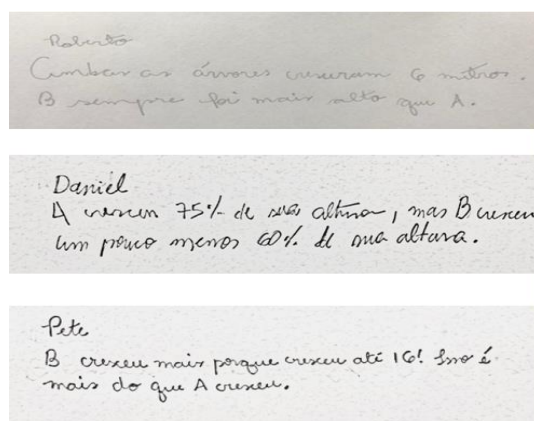 Roberto
Ambas as árvores cresceram 6 metros.
B sempre foi mais alto que A.
Daniel
A cresceu 75% de sua altura, mas B cresceu
um pouco menos 60% de sua altura.
Pete
B cresceu mais porque cresceu até 16! Isso é
mais do que A cresceu.